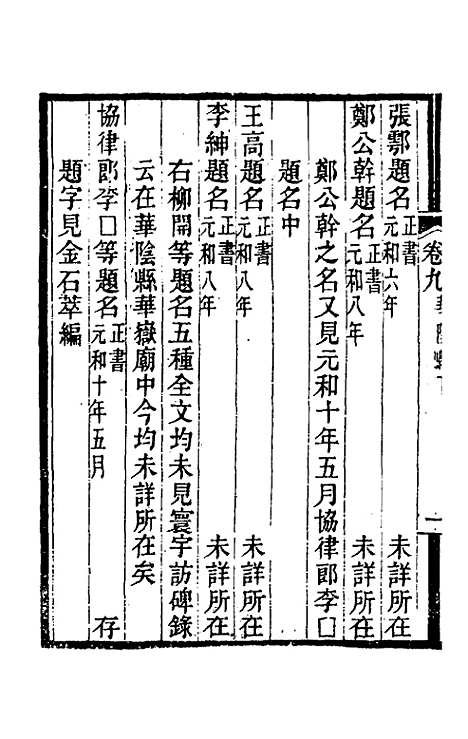 張鄠題名正書元和六年 未詳所在
鄭公幹題名正書元和八年 未詳所在
鄭公幹之名又見元和十年五月協律郎李□
題名中
王高題名正書元和八年 未詳所在
李紳題名正書元和八年 未詳所在
右柳開等題名五種全文均未見寰宇訪碑錄
云在華陰縣華嶽廟中今均未詳所在矣
協律郎李□等題名正書元和十年五月 存
題字見金石萃編
卷九
一